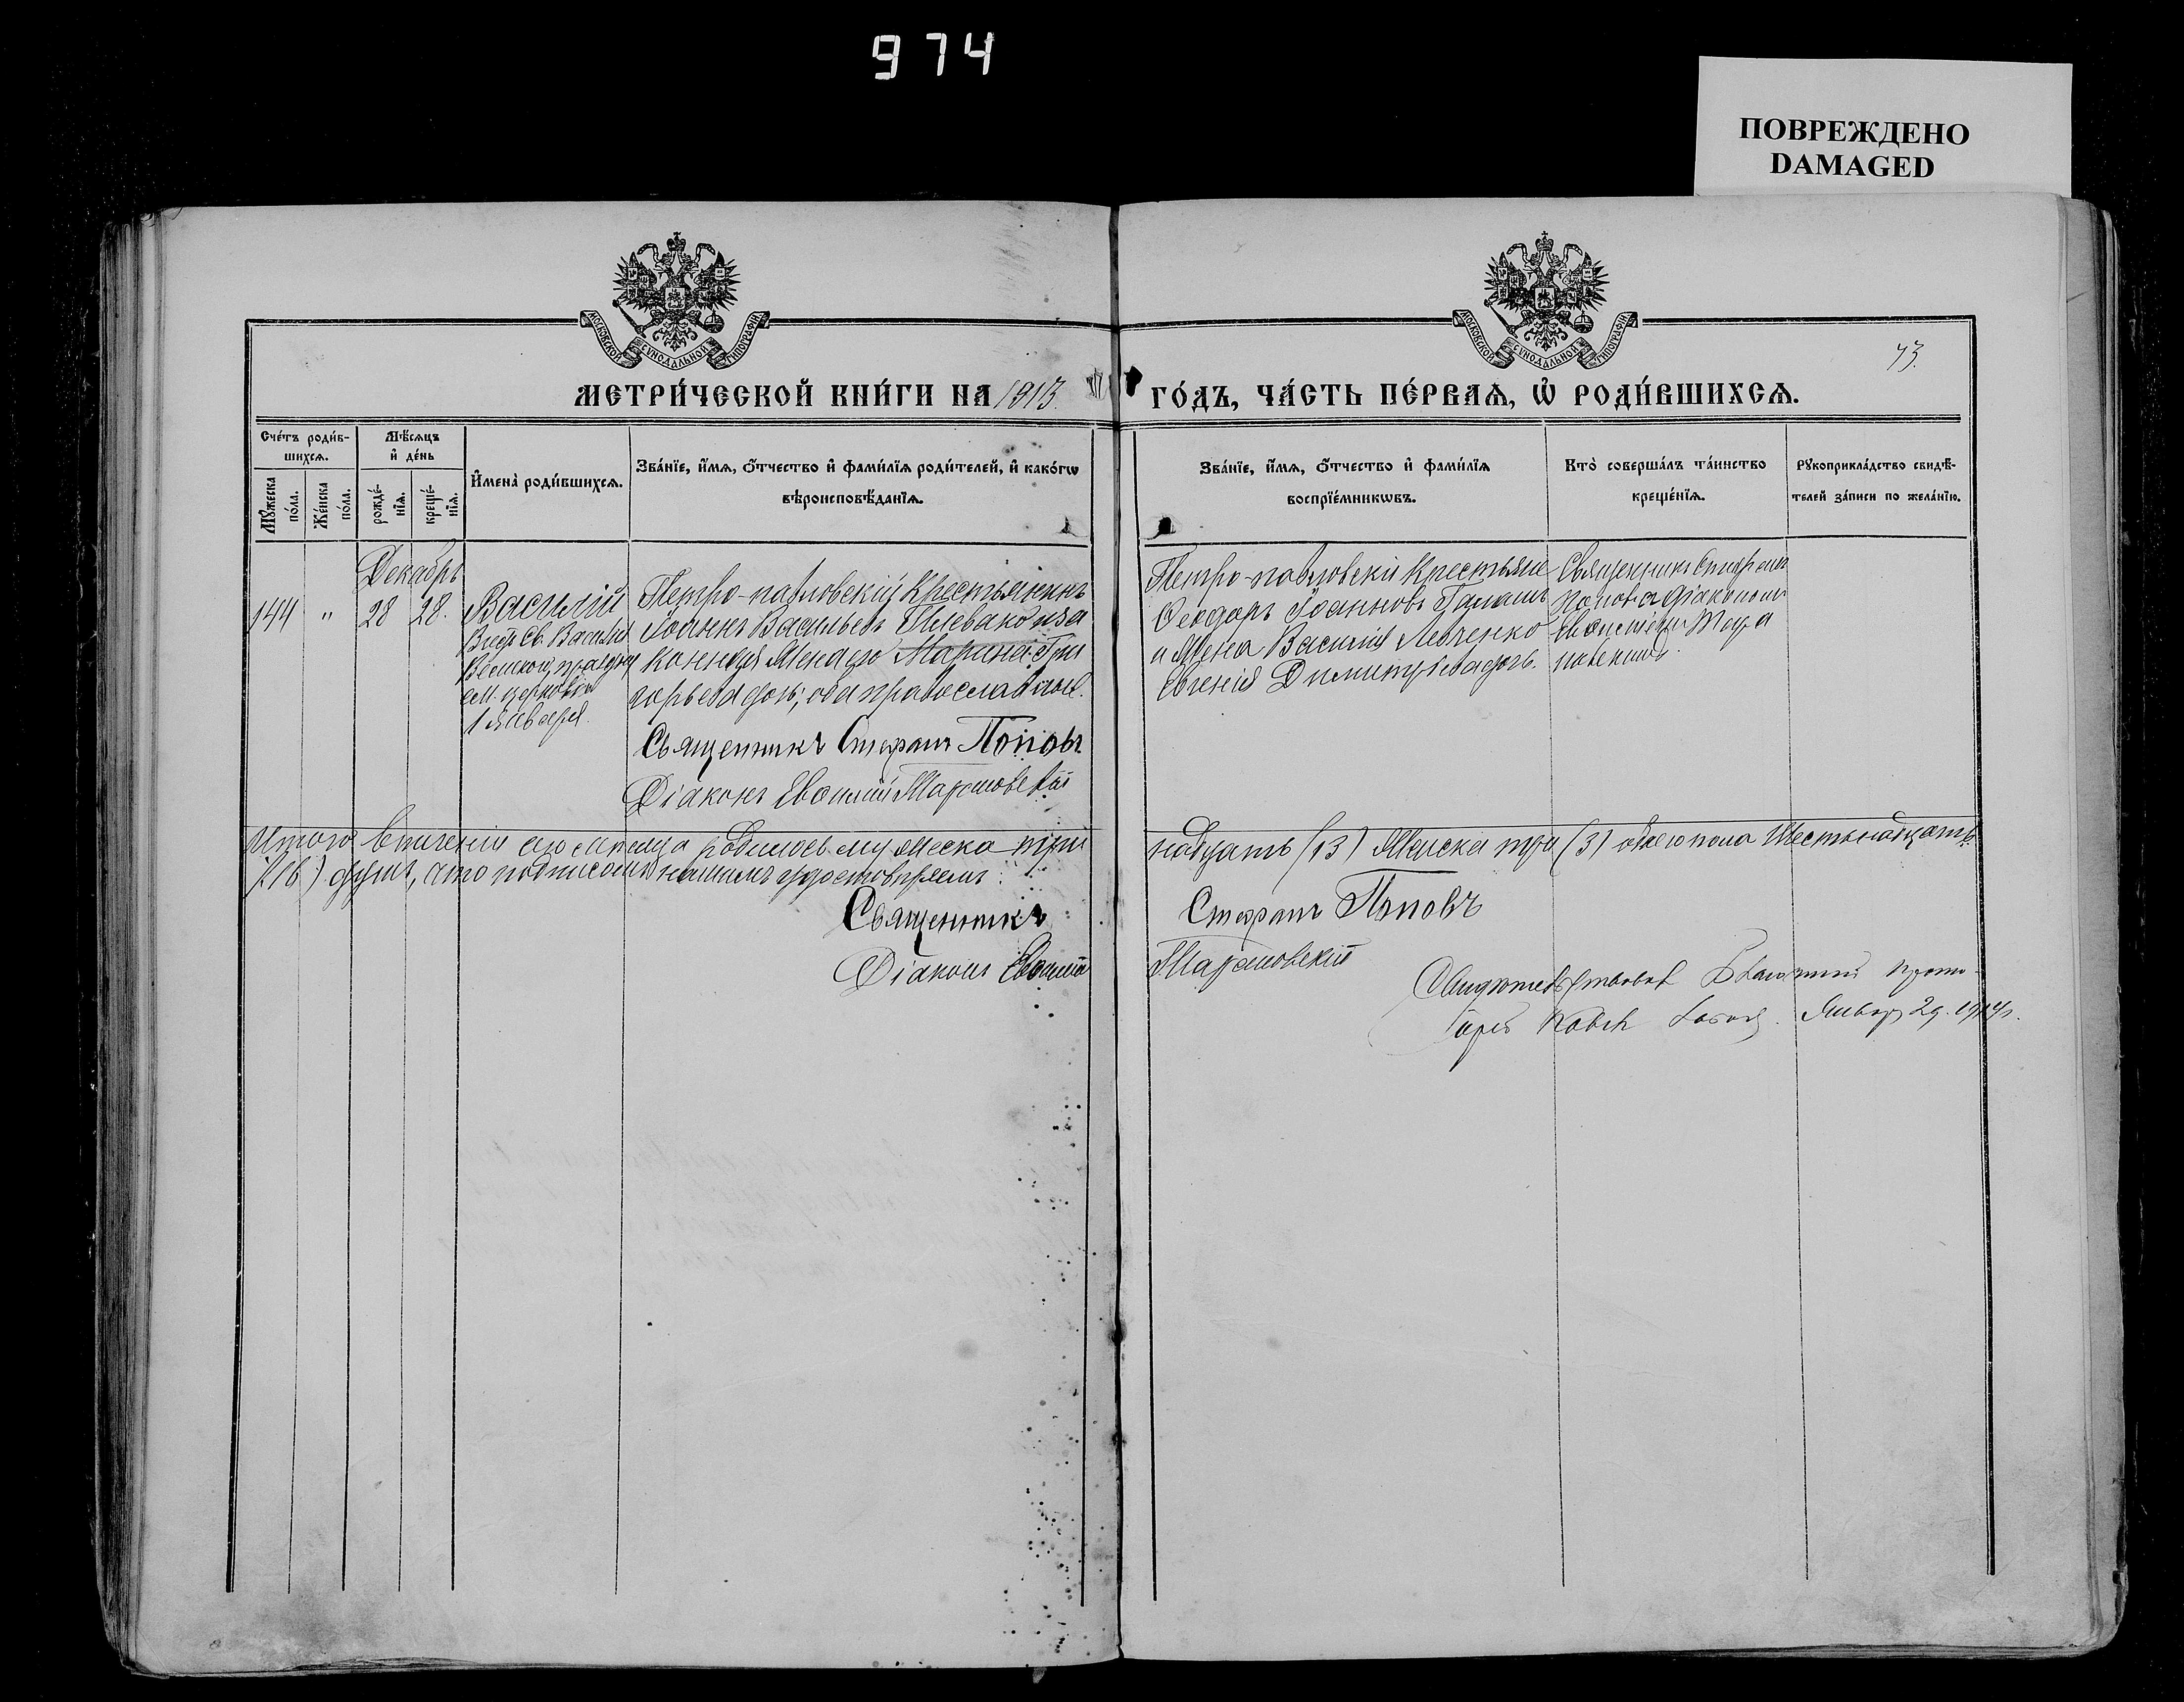 974
ПОВРЕЖДЕНО
DAMAGED
МОСКОВСКОЙ СѴНОДАЛЬНОЙ ТИПОГРАФІИ
МОСКОВСКОЙ СѴНОДАЛЬНОЙ ТИПОГРАФІИ
73.
МЕТРИ́ЧЕСКОЙ КНИ́ГИ НА 1913 ГО́ДЪ, ЧА́СТЬ ПЕ́РВАѦ, Ѡ҆ РОДИ́ВШИХСѦ.
Сче́тъ роди́в-
шихсѧ.
Мꙋ́жеска по́ла.
Же́нска по́ла.
Мѣ́сѧцъ
и҆ де́нь
рожде́-
нїѧ.
креще́-
нїѧ.
И҆мена̀ роди́вшихсѧ.
Зва́нїе, и҆́мѧ, ѻ҆́тчество и҆ фами́лїѧ роди́телей, и҆ како́гѡ
вѣроисповѣ́данїѧ.
Зва́нїе, и҆́мѧ, ѻ҆́тчество и҆ фами́лїѧ
воспрїе́мникѡвъ.
Кто̀ соверша́лъ та́инство
креще́нїѧ.
Рꙋкоприкла́дство свидѣ́-
телей за́писи по жела́нїю.
Декабрь
144 " 28 28.
Василій
Св. Василія
1 Января.
Петро-павловскій Крестьянинъ
Іоаннъ Васильевъ Плевако и за
конная жена его Марина Гри
горьева дочь; оба православные.
Священникъ Стефанъ Поповъ
Діаконъ Евѳимій
Петро-павловскіи Крестьяне
Ѳеодоръ Іоанновъ
и жена Василія Левченко
Евгенія Димитріева дочь.
Священникъ Стефанъ
Поповъ с діакономъ
Итого в теченіи сего месяца родилось мужеска три
надцать (13) женска три (3) обоего пола шестьнадцать
(16) душъ, что подписомъ нашимъ удостовѣряемъ.
Священникъ Стефанъ Поповъ
Діаконъ Евѳимій
Свидѣтельствовалъ Благочинный прото-
іерей Январ 29. 1914 г.